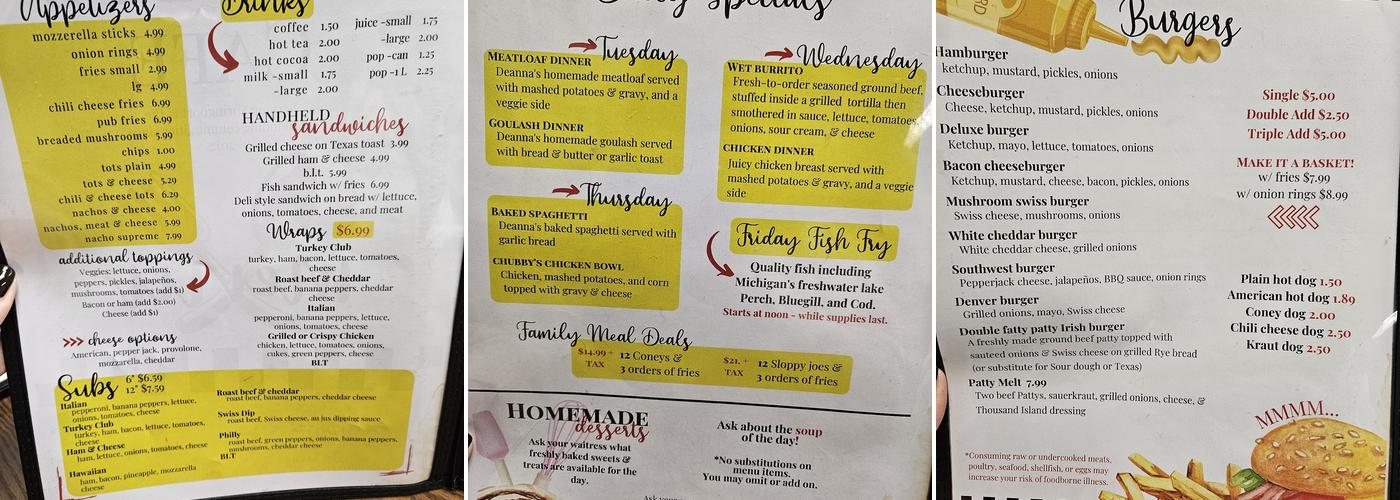 Appetizers
mozzerella sticks 4.99
onion rings 4.99
fries small 2.99
lg 4.99
chili cheese fries 6.99
pub fries 6.99
breaded mushrooms 5.99
chips 1.00
tots plain 4.99
tots & cheese 5.29
chili & cheese tots 6.29
nachos & cheese 4.00
nachos, meat & cheese 5.99
nacho supreme 7.99
additional toppings
Veggies: lettuce, onions,
peppers, pickles, jalapeños,
mushrooms, tomatoes (add $1)
Bacon or ham (add $2.00)
Cheese (add $1)
>>> cheese options
American, pepper jack, provolone,
mozzarella, cheddar
Drinks
coffee 1.50
hot tea 2.00
hot cocoa 2.00
milk -small 1.75
-large 2.00
juice -small 1.75
-large 2.00
pop -can 1.25
pop -1 L 2.25
HANDHELD
sandwiches
Grilled cheese on Texas toast 3.99
Grilled ham & cheese 4.99
b.l.t. 5.99
Fish sandwich w/ fries 6.99
Deli style sandwich on bread w/ lettuce,
onions, tomatoes, cheese, and meat
Wraps $6.99
Turkey Club
turkey, ham, bacon, lettuce, tomatoes,
cheese
Roast beef & Cheddar
roast beef, banana peppers, cheddar
cheese
Italian
pepperoni, banana peppers, lettuce,
onions, tomatoes, cheese
Grilled or Crispy Chicken
chicken, lettuce, tomatoes, onions,
cukes, green peppers, cheese
BLT
Subs 6" $6.59
12" $7.59
Italian
pepperoni, banana peppers, lettuce,
onions, tomatoes, cheese
Turkey Club
turkey, ham, bacon, lettuce, tomatoes,
cheese
Ham & Cheese
ham, lettuce, onions, tomatoes, cheese
Hawaiian
ham, bacon, pineapple, mozzarella
cheese
Roast beef & cheddar
roast beef, banana peppers, cheddar cheese
Swiss Dip
roast beef, Swiss cheese, au jus dipping sauce
Philly
roast beef, green peppers, onions, banana peppers,
mushrooms, cheddar cheese
BLT
Specials
Tuesday
MEATLOAF DINNER
Deanna's homemade meatloaf served
with mashed potatoes & gravy, and a
veggie side
GOULASH DINNER
Deanna's homemade goulash served
with bread & butter or garlic toast
Wednesday
WET BURRITO
Fresh-to-order seasoned ground beef,
stuffed inside a grilled tortilla then
smothered in sauce, lettuce, tomatoes,
onions, sour cream, & cheese
CHICKEN DINNER
Juicy chicken breast served with
mashed potatoes & gravy, and a veggie
side
Thursday
BAKED SPAGHETTI
Deanna's baked spaghetti served with
garlic bread
CHUBBY'S CHICKEN BOWL
Chicken, mashed potatoes, and corn
topped with gravy & cheese
Friday Fish Fry
Quality fish including
Michigan's freshwater lake
Perch, Bluegill, and Cod.
Starts at noon - while supplies last.
Family Meal Deals
$14.99 + TAX 12 Coneys &
3 orders of fries
$21. + TAX 12 Sloppy joes &
3 orders of fries
HOMEMADE
desserts
Ask your waitress what
freshly baked sweets &
treats are available for the
day.
Ask about the soup
of the day!
*No substitutions on
menu items.
You may omit or add on.
Burgers
Hamburger
ketchup, mustard, pickles, onions
Cheeseburger
Cheese, ketchup, mustard, pickles, onions
Deluxe burger
Ketchup, mayo, lettuce, tomatoes, onions
Bacon cheeseburger
Ketchup, mustard, cheese, bacon, pickles, onions
Mushroom swiss burger
Swiss cheese, mushrooms, onions
White cheddar burger
White cheddar cheese, grilled onions
Southwest burger
Pepperjack cheese, jalapeños, BBQ sauce, onion rings
Denver burger
Grilled onions, mayo, Swiss cheese
Double fatty patty Irish burger
A freshly made ground beef patty topped with
sauteed onions & Swiss cheese on grilled Rye bread
(or substitute for Sour dough or Texas)
Patty Melt 7.99
Two beef Pattys, sauerkraut, grilled onions, cheese, &
Thousand Island dressing
Single $5.00
Double Add $2.50
Triple Add $5.00
MAKE IT A BASKET!
w/ fries $7.99
w/ onion rings $8.99
Plain hot dog 1.50
American hot dog 1.89
Coney dog 2.00
Chili cheese dog 2.50
Kraut dog 2.50
MMMM...
*Consuming raw or undercooked meats,
poultry, seafood, shellfish, or eggs may
increase your risk of foodborne illness.